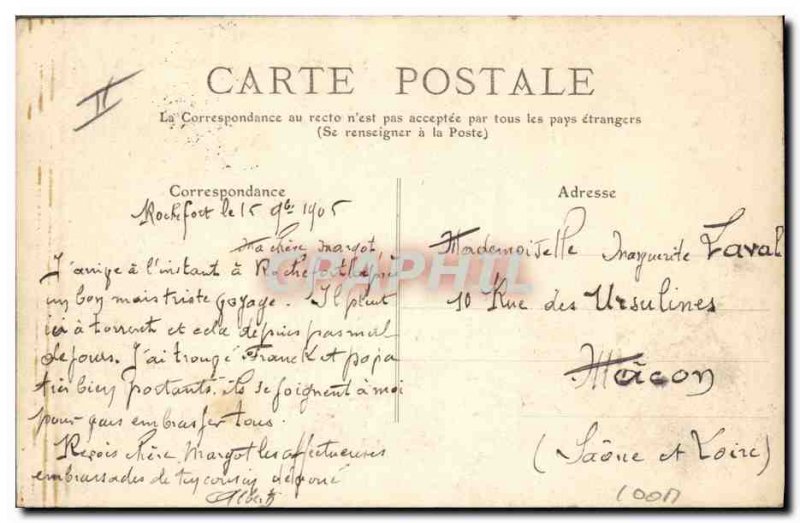 II
CARTE POSTALE
La Correspondance au recto n'est pas acceptée par tous les pays étrangers
(Se renseigner à la Poste)
Correspondance
Rochefort le 15 9bre 1905
Ma chère Margot
J'arrive à l'instant à Rochefort après
un bon mais triste voyage. Il pleut
ici à torrent et cela depuis pas mal
de jours. J'ai trouvé Franck et papa
très bien portants. ils se joignent à moi
pour vous embrasser tous.
Reçois chère Margot les affectueuses
embrassades de ton cousin dévoué
Albert
Adresse
Mademoiselle Marguerite Laval
10 Rue des Ursulines
Mâcon
(Saône et Loire)
CARAPHIL